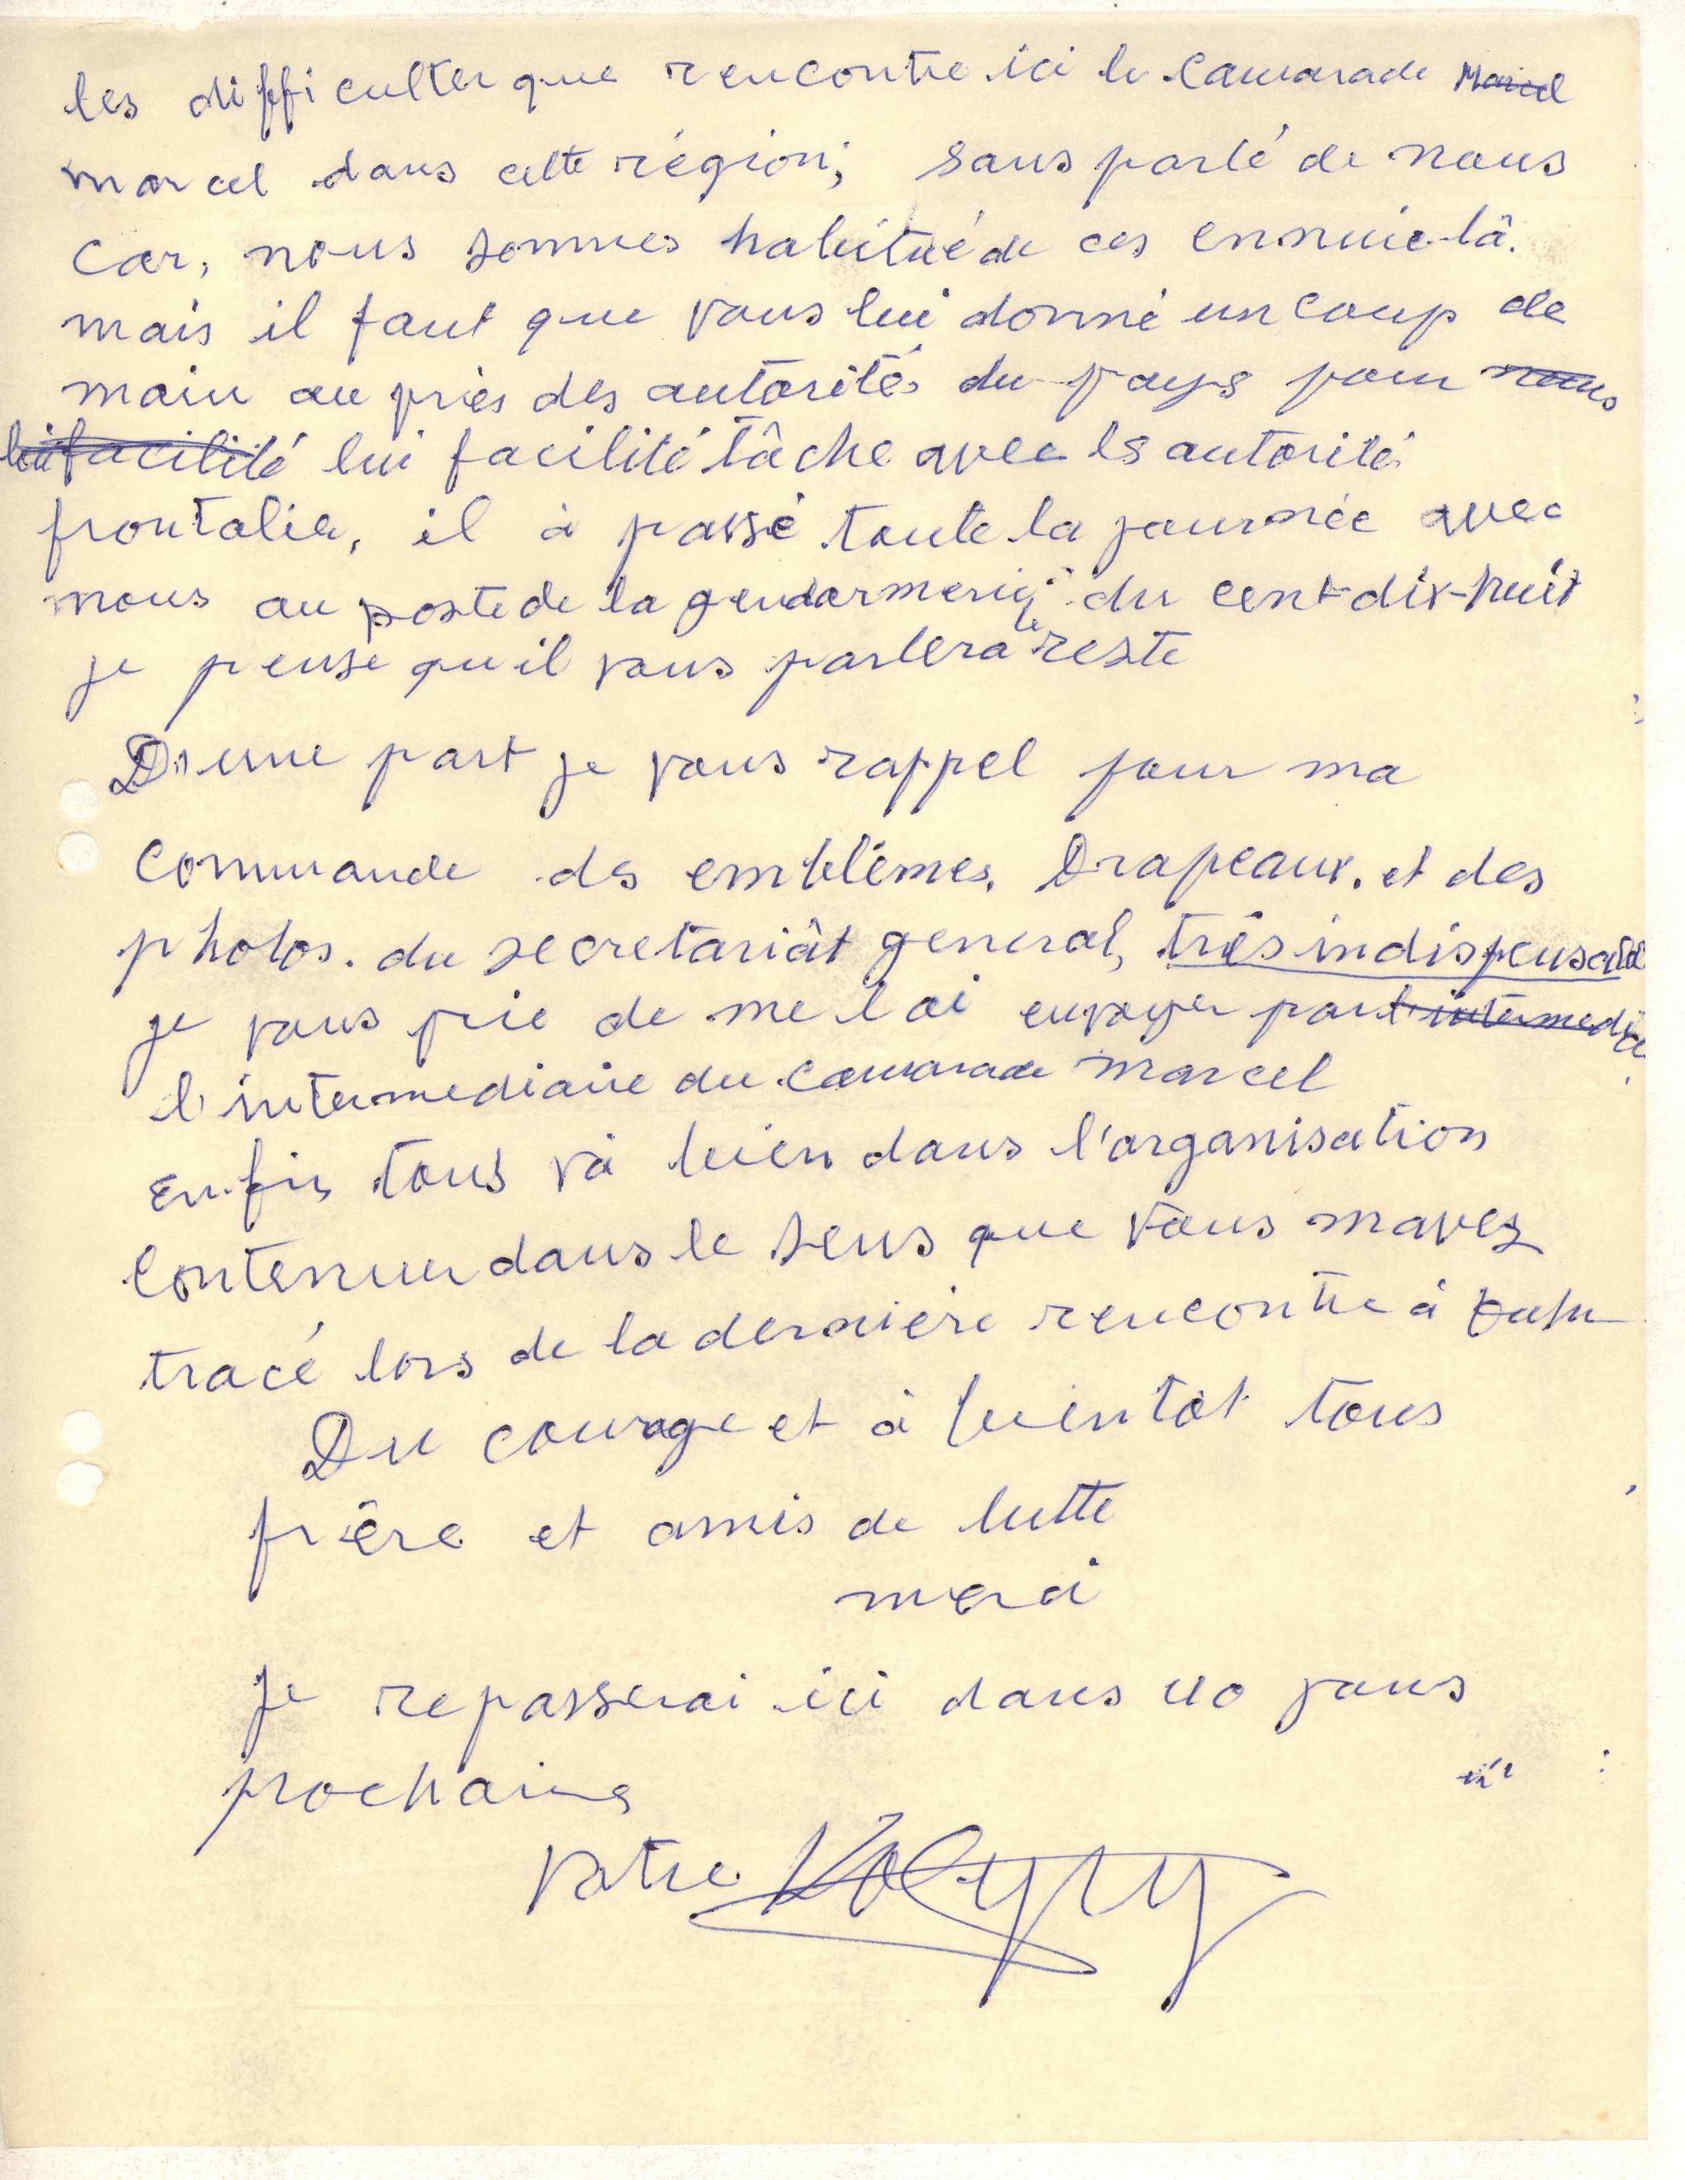 les difficulter que rencontre ici le camarade Marcel
marcel dans cette région; sans parlé de nous
car, nous sommes habitué de ces ennuie-là.
mais il faut que vous lui donné un coup de
main au près des autorités du pays pour nous
lui facilité lui facilité tâche avec ls autorités
frontalier, il à passé toute la journée avec
nous au poste de la gendarmerie du cent-dix-huit
je pense qu'il vous parlera le reste
D'une part je vous rappel pour ma
commande des emblêmes. Drapeaux. et des
photos. du secretariât general, très indispensable
je vous prie de me l'ai envoyer par l'intermediaire
l'intermediaire du camarade marcel
en-fin tous và bien dans l'organisation
contenue dans le sens que vous mavez
tracé lors de la dernière rencontre à
Du courage et à bientôt tous
frère et amis de lutte
merci
je repasserai ici dans 10 jours
prochains
votre